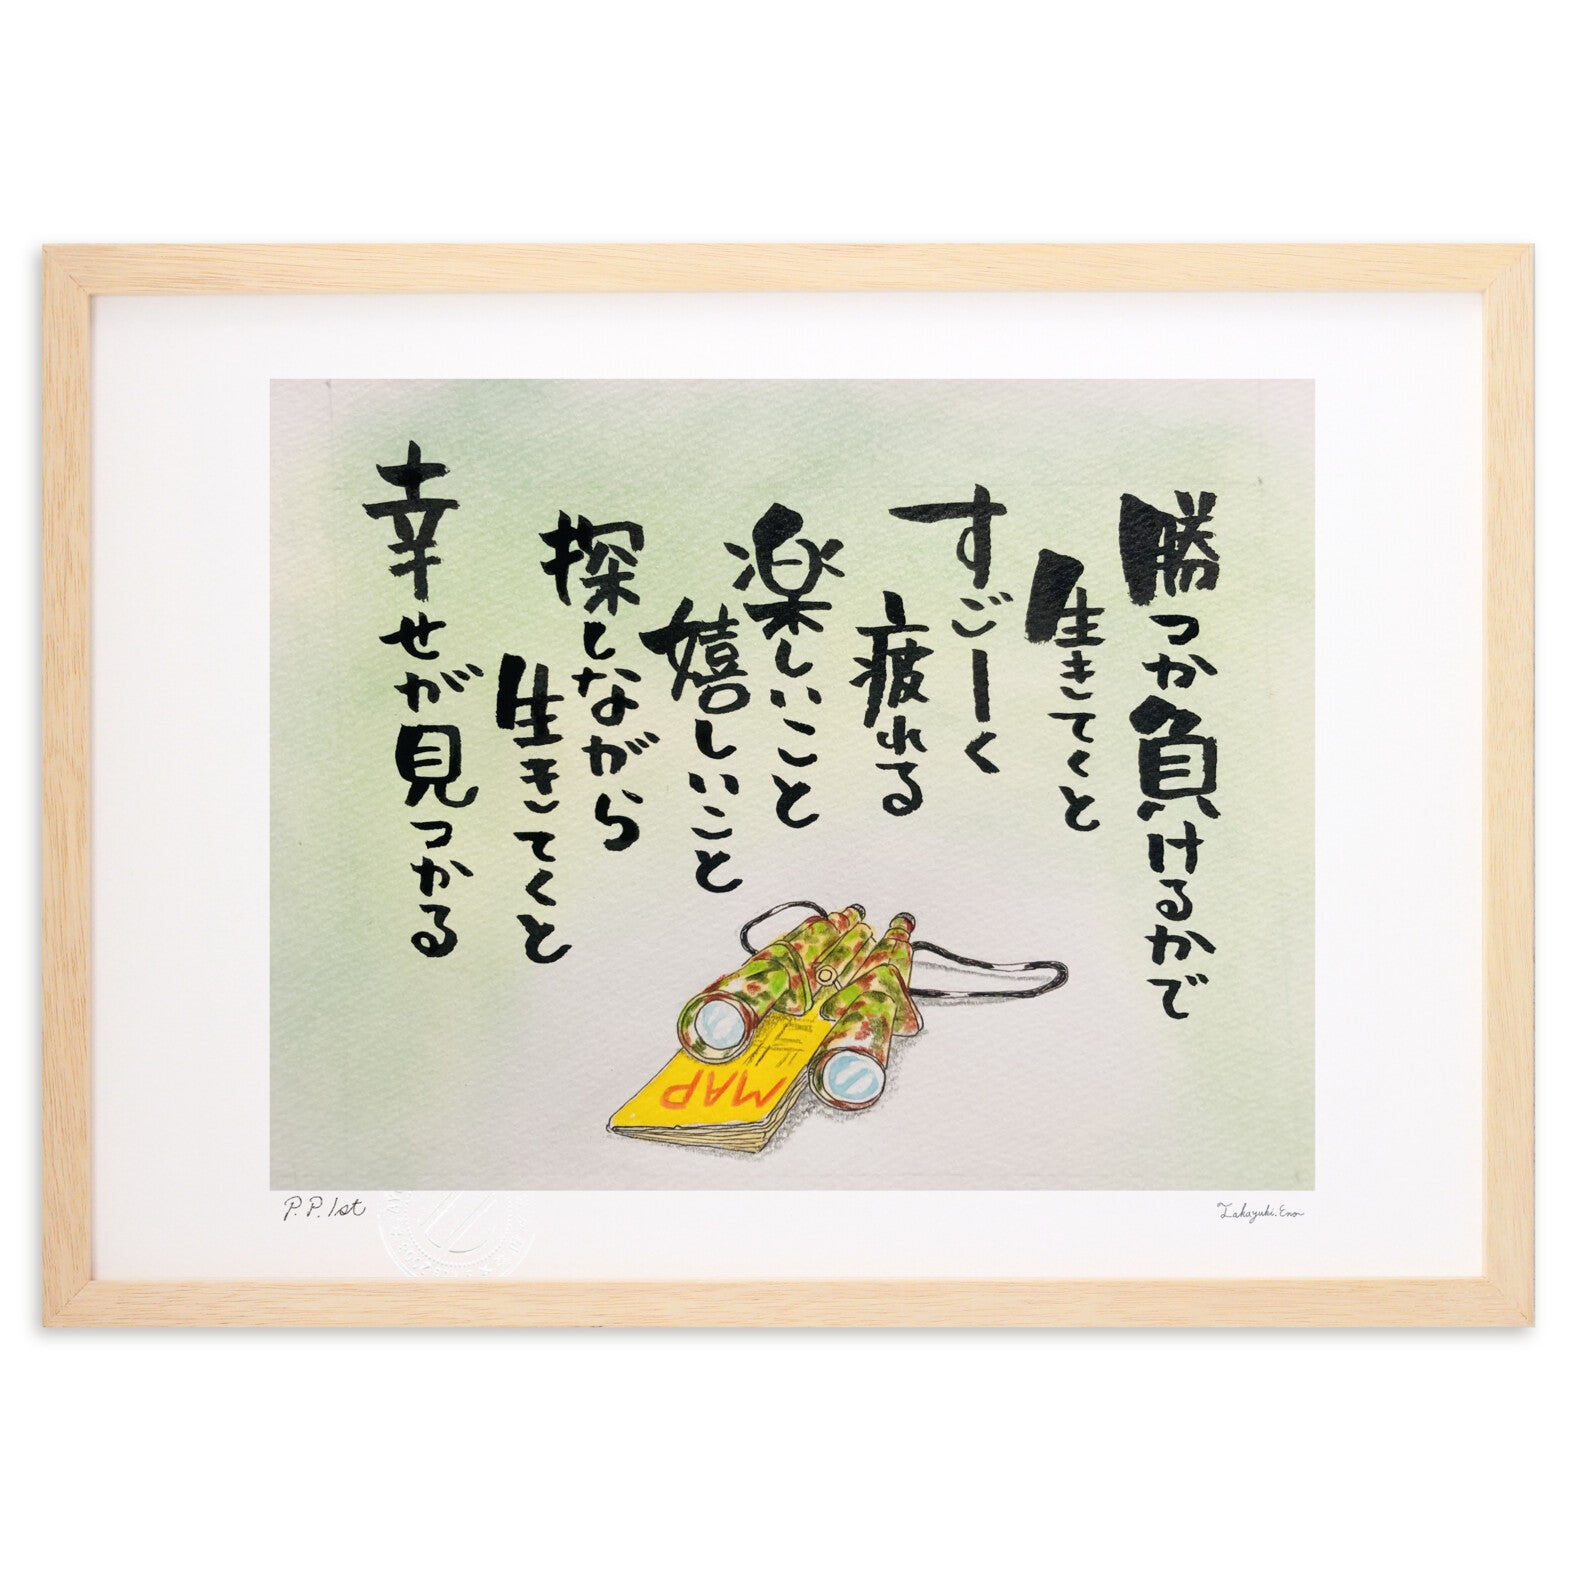 勝つか負けるかで
生きてくと
すごーく
疲れる
楽しいこと
嬉しいこと
探しながら
生きてくと
幸せが見つかる
MAP
P.P.1st
Takayuki.Eno